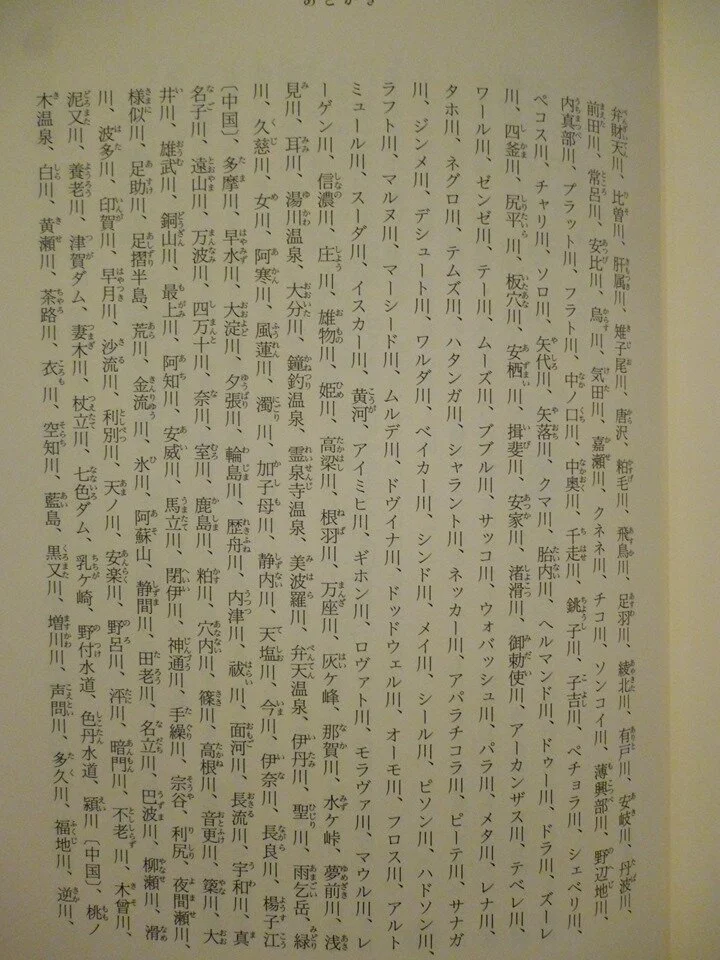 あとがき
弁財天川、比曽川、肝属川、雉子尾川、唐沢、粕毛川、飛鳥川、足羽川、綾北川、有戸川、安岐川、丹波川、
前田川、常呂川、安比川、烏川、気田川、嘉瀬川、クネネ川、チコ川、ソンコイ川、薄興部川、野辺地川、
内真部川、プラット川、フラト川、中ノ口川、中奥川、千走川、銚子川、子吉川、ペチョラ川、シェベリ川、
ペコス川、チャリ川、ソロ川、矢代川、矢落川、クマ川、胎内川、ヘルマンド川、ドゥー川、ドラ川、ズーレ
川、四釜川、尻平川、板穴川、安栖川、揖斐川、安家川、渚滑川、御勅使川、アーカンザス川、テベレ川、
ワール川、ゼンゼ川、テー川、ムーズ川、ブブル川、サッコ川、ウォバッシュ川、パラ川、メタ川、レナ川、
タホ川、ネグロ川、テムズ川、ハタンガ川、シャラント川、ネッカー川、アパラチコラ川、ピーテ川、サナガ
川、ジンメ川、デシュート川、ワルダ川、ベイカー川、シンド川、メイ川、シール川、ピソン川、ハドソン川、
ラフト川、マルヌ川、マーシード川、ムルデ川、ドヴィイナ川、ドッドウェル川、オーモ川、フロス川、アルト
ミュール川、スーダ川、イスカー川、黄河、アイミヒ川、ギホン川、ロヴァト川、モラヴァ川、マウル川、レ
ーゲン川、信濃川、庄川、雄物川、姫川、高梁川、根羽川、万座川、灰ケ峰、那賀川、水ケ峠、夢前川、浅
見川、耳川、湯川温泉、大分川、鐘釣温泉、霊泉寺温泉、美波羅川、弁天温泉、伊丹川、聖川、雨乞岳、緑
川、久慈川、女川、阿寒川、風蓮川、濁川、加子母川、静内川、天塩川、今川、伊奈川、長良川、楊子江
〔中国〕、多摩川、早水川、大淀川、夕張川、輪島川、歴舟川、内津川、祓川、面河川、長流川、宇和川、真
名子川、遠山川、万波川、四万十川、奈川、室川、鹿島川、粕川、穴内川、篠川、高根川、音更川、簗川、大
井川、雄武川、銅山川、最上川、阿知川、安威川、馬立川、閉伊川、神通川、手繰川、宗谷、利尻、夜間瀬川、
様似川、足助川、足摺半島、荒川、金流川、氷川、阿蘇山、静間川、田老川、名立川、巴波川、柳瀬川、滑
川、波多川、印賀川、早月川、沙流川、利別川、天ノ川、安楽川、野呂川、泙川、暗門川、不老川、木曾川、
泥又川、養老川、津賀ダム、妻木川、杖立川、七色ダム、乳ケ崎、野付水道、色丹水道、潁川〔中国〕、桃ノ
木温泉、白川、黄瀬川、茶路川、衣川、空知川、藍島、黒又川、増川川、声問川、多久川、福地川、逆川、